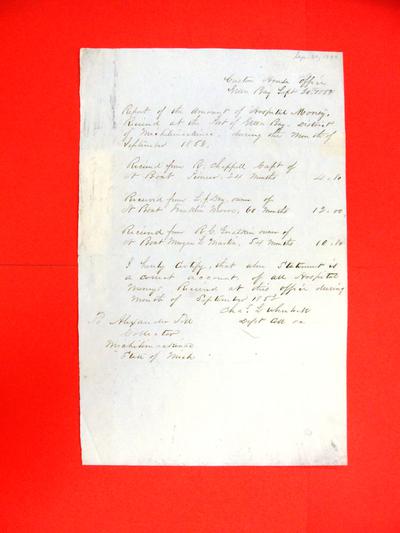 Custom House office
Green Bay Sept 30 1852
Report of the amount of Hospital Money
Received at the Port of Green Bay, District
of Michilimackinac, during the Month of
September 1852.
Received from R. Chappell Capt of
St Boat 24 Months 4.80
Received from L. J. Day owner of
St Boat Franklin Moore, 60 Months 12.00
Received from R. C. owner of
St Boat Morgan L Martin, 54 Months 10.80
I hereby Certify, that above Statement is
a correct account of all Hospital
Moneys Received at this office during
Month of September 1852
Chas. D
Dept Coll
To Alexander Toll
Collector
Michilimackinac
State of Mich